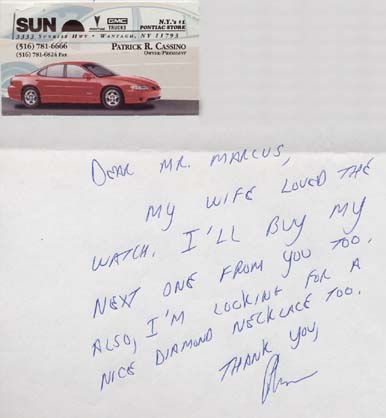 SUN
PONTIAC GMC TRUCKS N.Y.'s #1 PONTIAC STORE
3333 SUNRISE HWY • WANTAGH, NY 11793
(516) 781-6666
(516) 781-6824 Fax
PATRICK R. CASSINO
OWNER/PRESIDENT
DEAR MR. MARCUS,
MY WIFE LOVED THE
WATCH. I'LL BUY MY
NEXT ONE FROM YOU TOO.
ALSO, I'M LOOKING FOR A
NICE DIAMOND NECKLACE TOO.
THANK YOU,